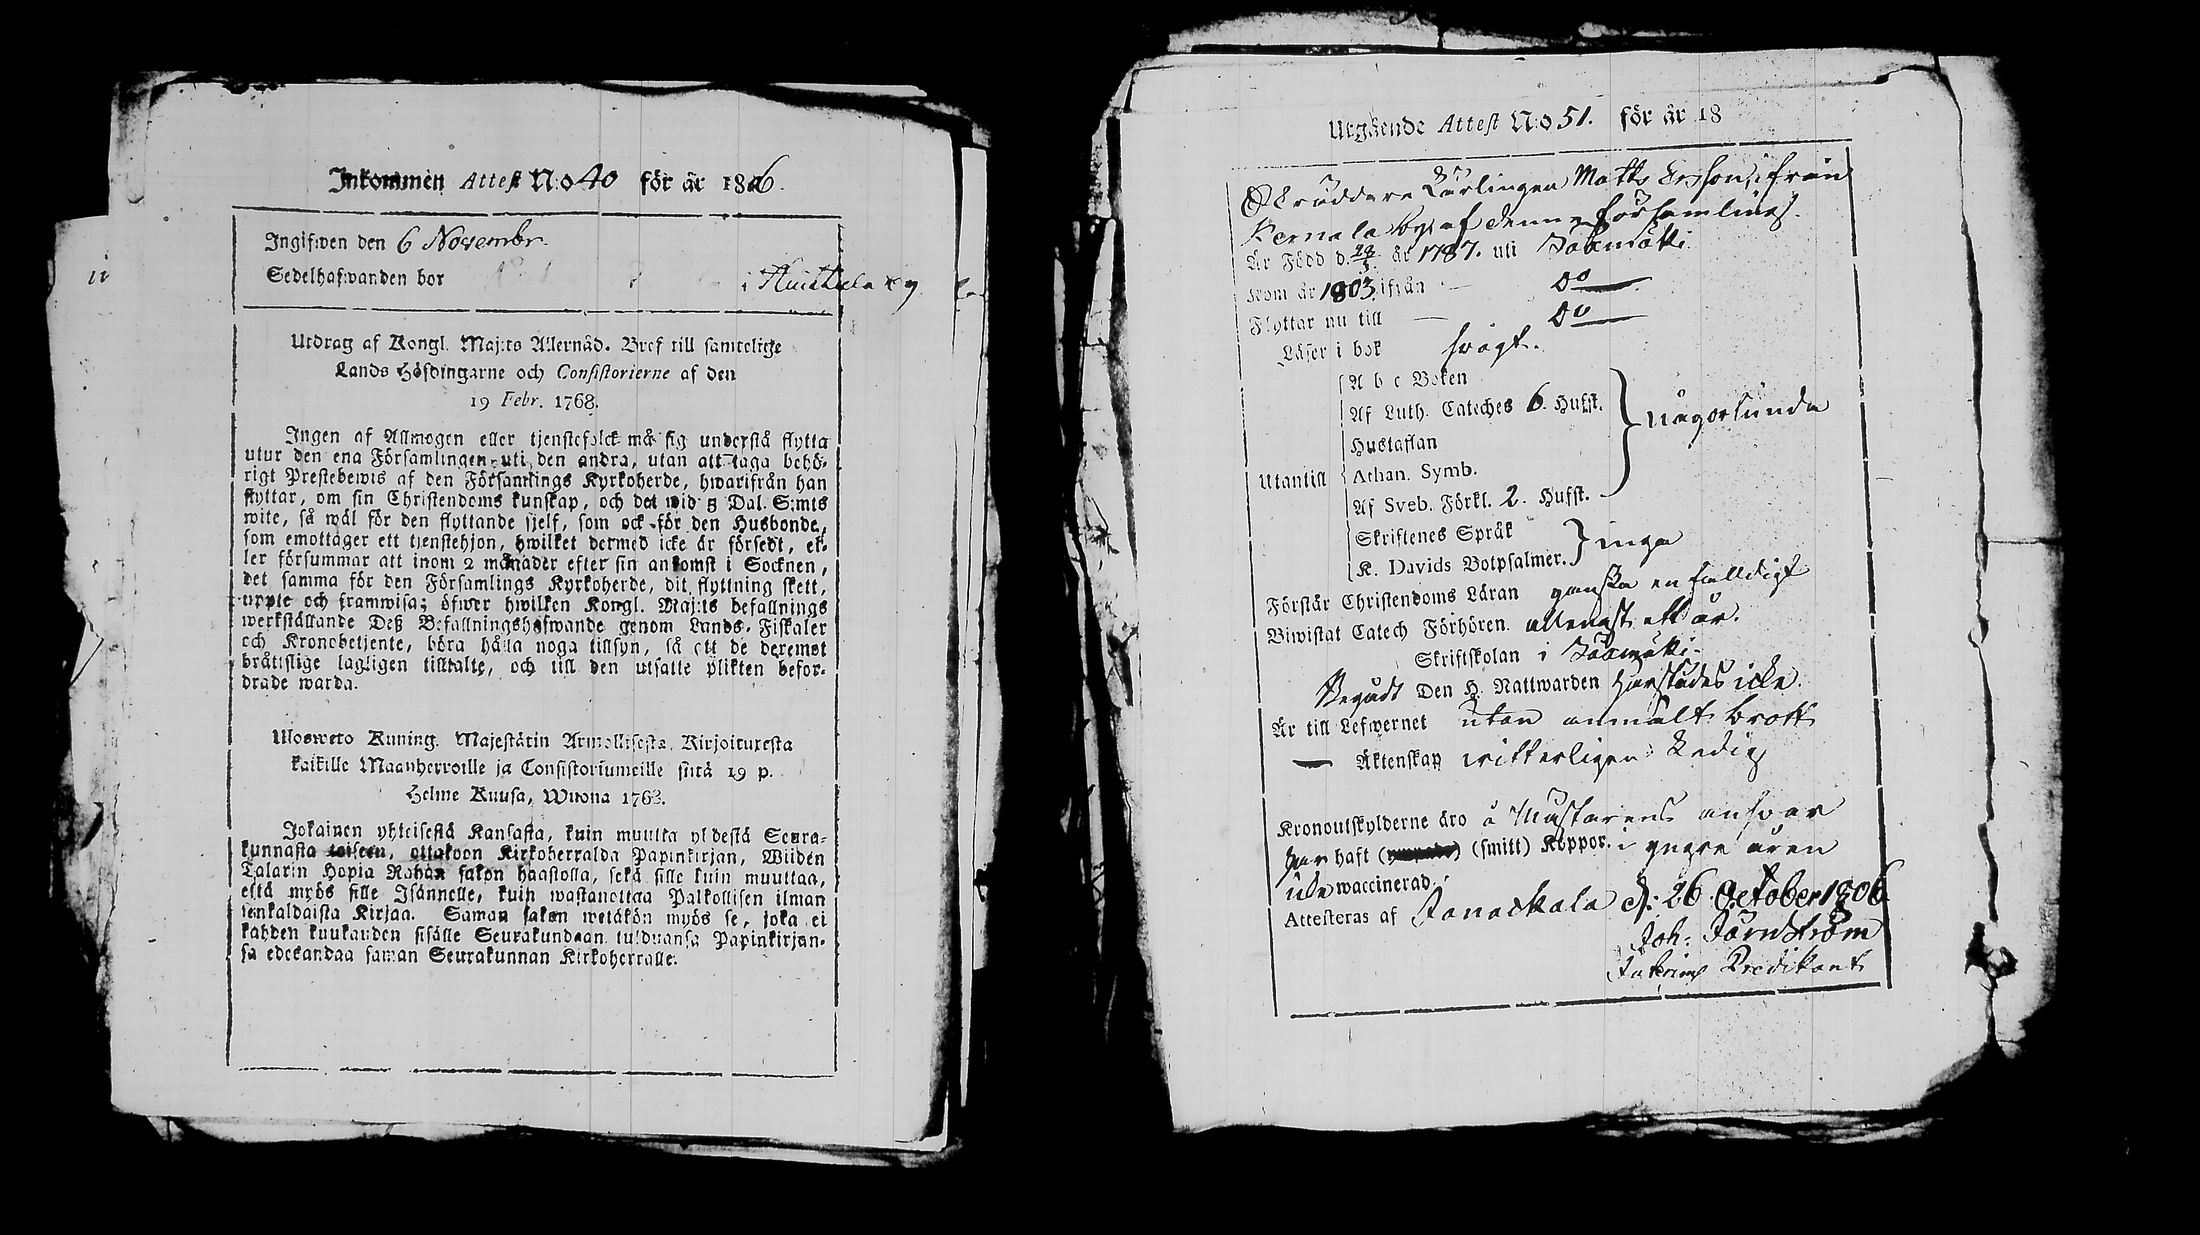 Inkommen Attest N:o 40 för år 1806.
Ingifwen den 6 Novembr.
Sedelhafwanden bor i
Utdrag af Kongl. Maj:ts Allernåd. Bref till samtelige
Lands Höfdingarne och Consistorierne af den
19 Febr. 1768.
Ingen af Allmogen eller tjenstefolck må sig understå flytta
utur den ena Församlingen uti den andra, utan att taga behö-
rigt Prestebewis af den Församlings Kyrkoherde, hwarifrån han
flyttar, om sin Christendoms kunskap, och det wid 5 Dal. S:mts
wite, så wäl för den flyttande sjelf, som ock för den Husbonde,
som emottager ett tjenstehjon, hwilket dermed icke är försedt, el-
ler försummar att inom 2 månader efter sin ankomst i Socknen,
det samma för den Församlings Kyrkoherde, dit flyttning skett,
uppte och framwisa; öfwer hwilken Kongl. Maj:ts befallnings
werkställande Deß Befallningshafwande genom Lands-Fiskaler
och Kronobetjente, böra hålla noga tillsyn, så att de deremot
bråttslige lagligen tilltalte, och till den utsatte plikten befor-
drade warda.
Ulosweto Kuning. Majestätin Armollisesta Kirjoituxesta
kaikille Maanherroille ja Consistoriumeille siitä 19 p.
Helme Kuusa, Wuona 1768.
Jokainen yhteisestä Kansasta, kuin muutta yhdestä Seura-
kunnasta toiseen, ottakoon Kirkoherralda Papinkirjan, Wiiden
Talarin Hopia Rahan sakon haastolla, sekä sille kuin muuttaa,
että myös sille Isännelle, kuin wastanottaa Palkollisen ilman
senkaldaista Kirjaa. Saman sakon wetäkön myös se, joka ei
kahden kuukauden sisälle Seurakundaan tulduansa Papinkirjan-
sa edeskandaa saman Seurakunnan Kirkoherralle.
Utgående Attest N:o 51. för år 18
Skräddare Lärlingen Matts Ersson, ifrån
Kernala by af denne Församling.
Är Född d. 29/5 år 1787. uti Saxmäki
Kom år 1803. ifrån — D:o
Flyttar nu till — D:o
Läser i bok swagt.
Utantill
A b c Boken
Af Luth. Cateches 6. Hufst.
Hustaflan
Athan. Symb.
Af Sveb. Förkl. 2. Hufst.
någorlunda
Skriftenes Språk
K. Davids Botpsalmer.
inga
Förstår Christendoms Läran ganska enfalldigt
Biwistat Catech Förhören allenast ett år.
Skriftskolan i
Begådt Den H. Nattwarden harstädes icke.
Är till Lefwernet utan anmält brott
— Äktenskap witterligen Ledig
Kronoutskylderne äro å Mästarens answar
har haft (smitt) Koppor. i yngre åren
icke waccinerad.
Attesteras af Janackala d: 26 October 1806
Joh: Järnström
Interims Predikant